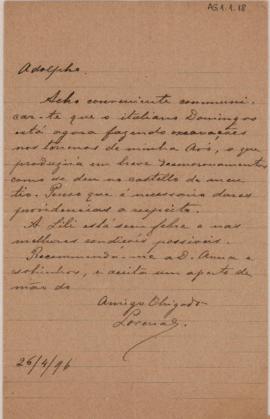 AS1.1.18
Adolpho.
Acho conveniente communi-
car-te que o italiano Domingos
está agora fazendo excavações
nos terrenos de minha Avó, o que
produzirá em breve desmoronamentos
como se deu no castello de meu
tio. Penso que é necessario dares
providencias a respeito.
A Lili está sem febre e nas
melhores condições possiveis.
Recommenda-me a D. Anna e
sobrinhos, e aceita um aperto de
mão do
Amigo Obrigado
26/4/96